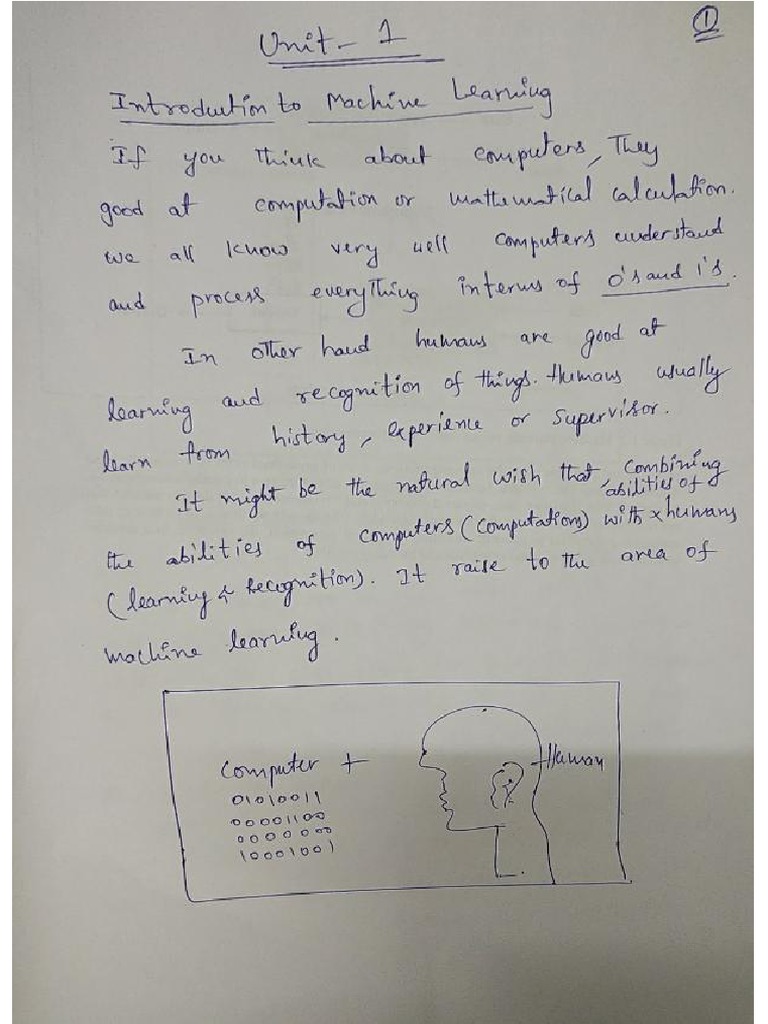 1
Unit - 1
Introduction to Machine Learning
If you think about computers, They
good at computation or mathematical calculation.
we all know very well computers understand
and process everything interms of 0's and 1's.
In other hand humans are good at
learning and recognition of things. Humans usually
learn from history, experience or supervisor.
It might be the natural wish that, combining
the abilities of computers (computations) with x humans
abilities of
(learning & recognition). It raise to the area of
machine learning.
computer + Human
01010011
00001100
0000000
10001001